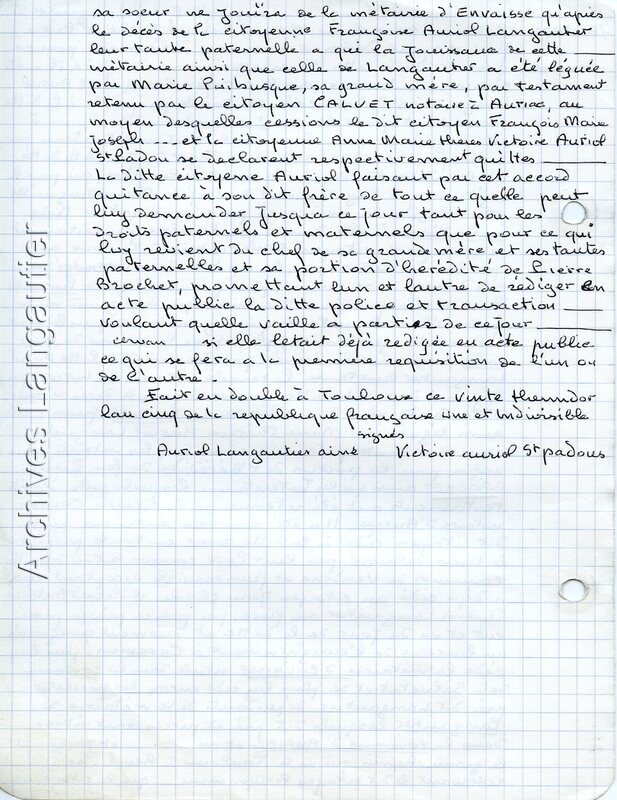 sa soeur ne jouïra de la métairie d'Envaisse qu'après
le décès de la citoyenne Françoise Auriol Langautier
leur tante paternelle a qui la Jouissance de cette
métairie ainsi que celle de Langautier a été léguée
par Marie Puibusque, sa grand mère, par testament
retenu par le citoyen CALVET notaire à Auriac, au
moyen desquelles cessions le dit citoyen François Marie
Joseph --- et la citoyenne Anne Marie Theres Victoire Auriol
St Padou se declarent respectivement quittes
La Ditte citoyenne Auriol faisant par cet accord
quitance à son dit frère de tout ce quelle peut
luy demander Jusqua ce jour tant pour les
Droits paternels et maternels que pour ce qui
luy revient du chef de sa grandemère et ses tantes
paternelles et sa portion d'herédité de Pierre
Brochet, promettant lun et lautre de rédiger en
acte public la ditte police et transaction
voulant quelle vaille à partir de ce jour
si elle letait déjà redigée en acte public
ce qui se fera a la première requisition de l'un ou
de l'autre.
Fait en double à Toulouse ce vinte thermidor
lan cinq de la republique française une et Indivisible
signés
Auriol Langautier ainé Victoire auriol St padous
Archives Langautier